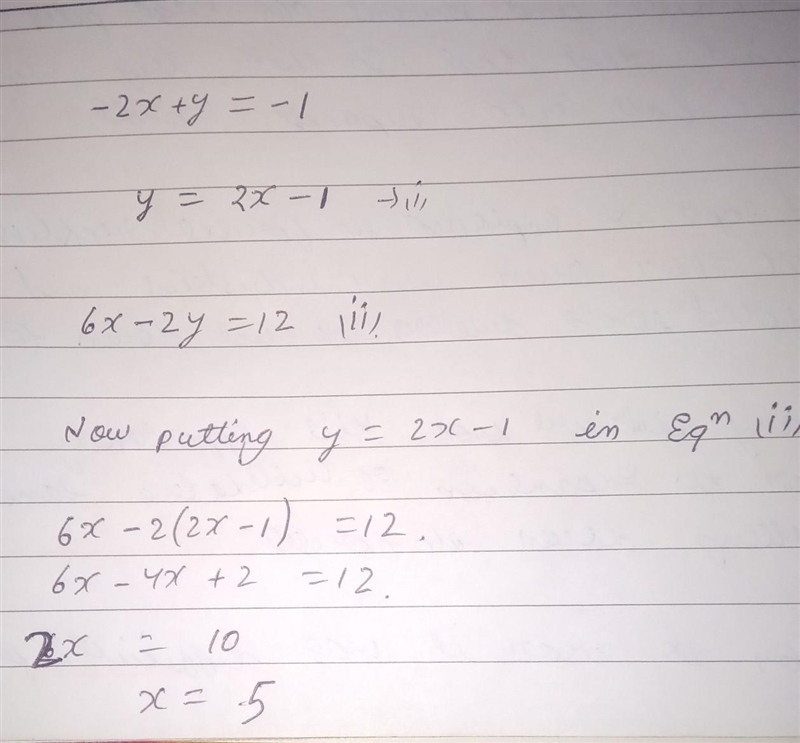 -2x+y = -1
y = 2x-1 →(i)
6x-2y =12 (ii)
Now putting y = 2x-1 in Eqⁿ (ii)
6x-2(2x-1) =12.
6x-4x+2 =12.
2x = 10
x = 5